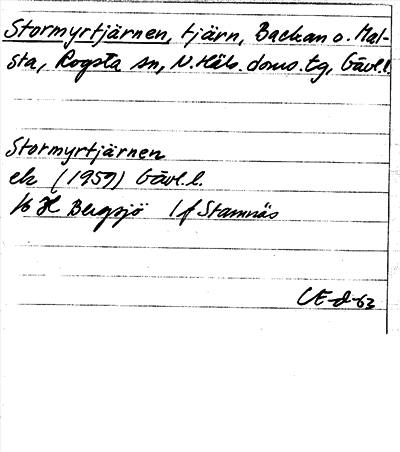 Stormyrtjärnen, tjärn, Backan o. Mal-
sta, Rogsta sn, N. Häls. doms. tg, Gävl. l.
Stormyrtjärnen
ek (1959) Gävl. l.
16 H Bergsjö 1 f Stamnäs